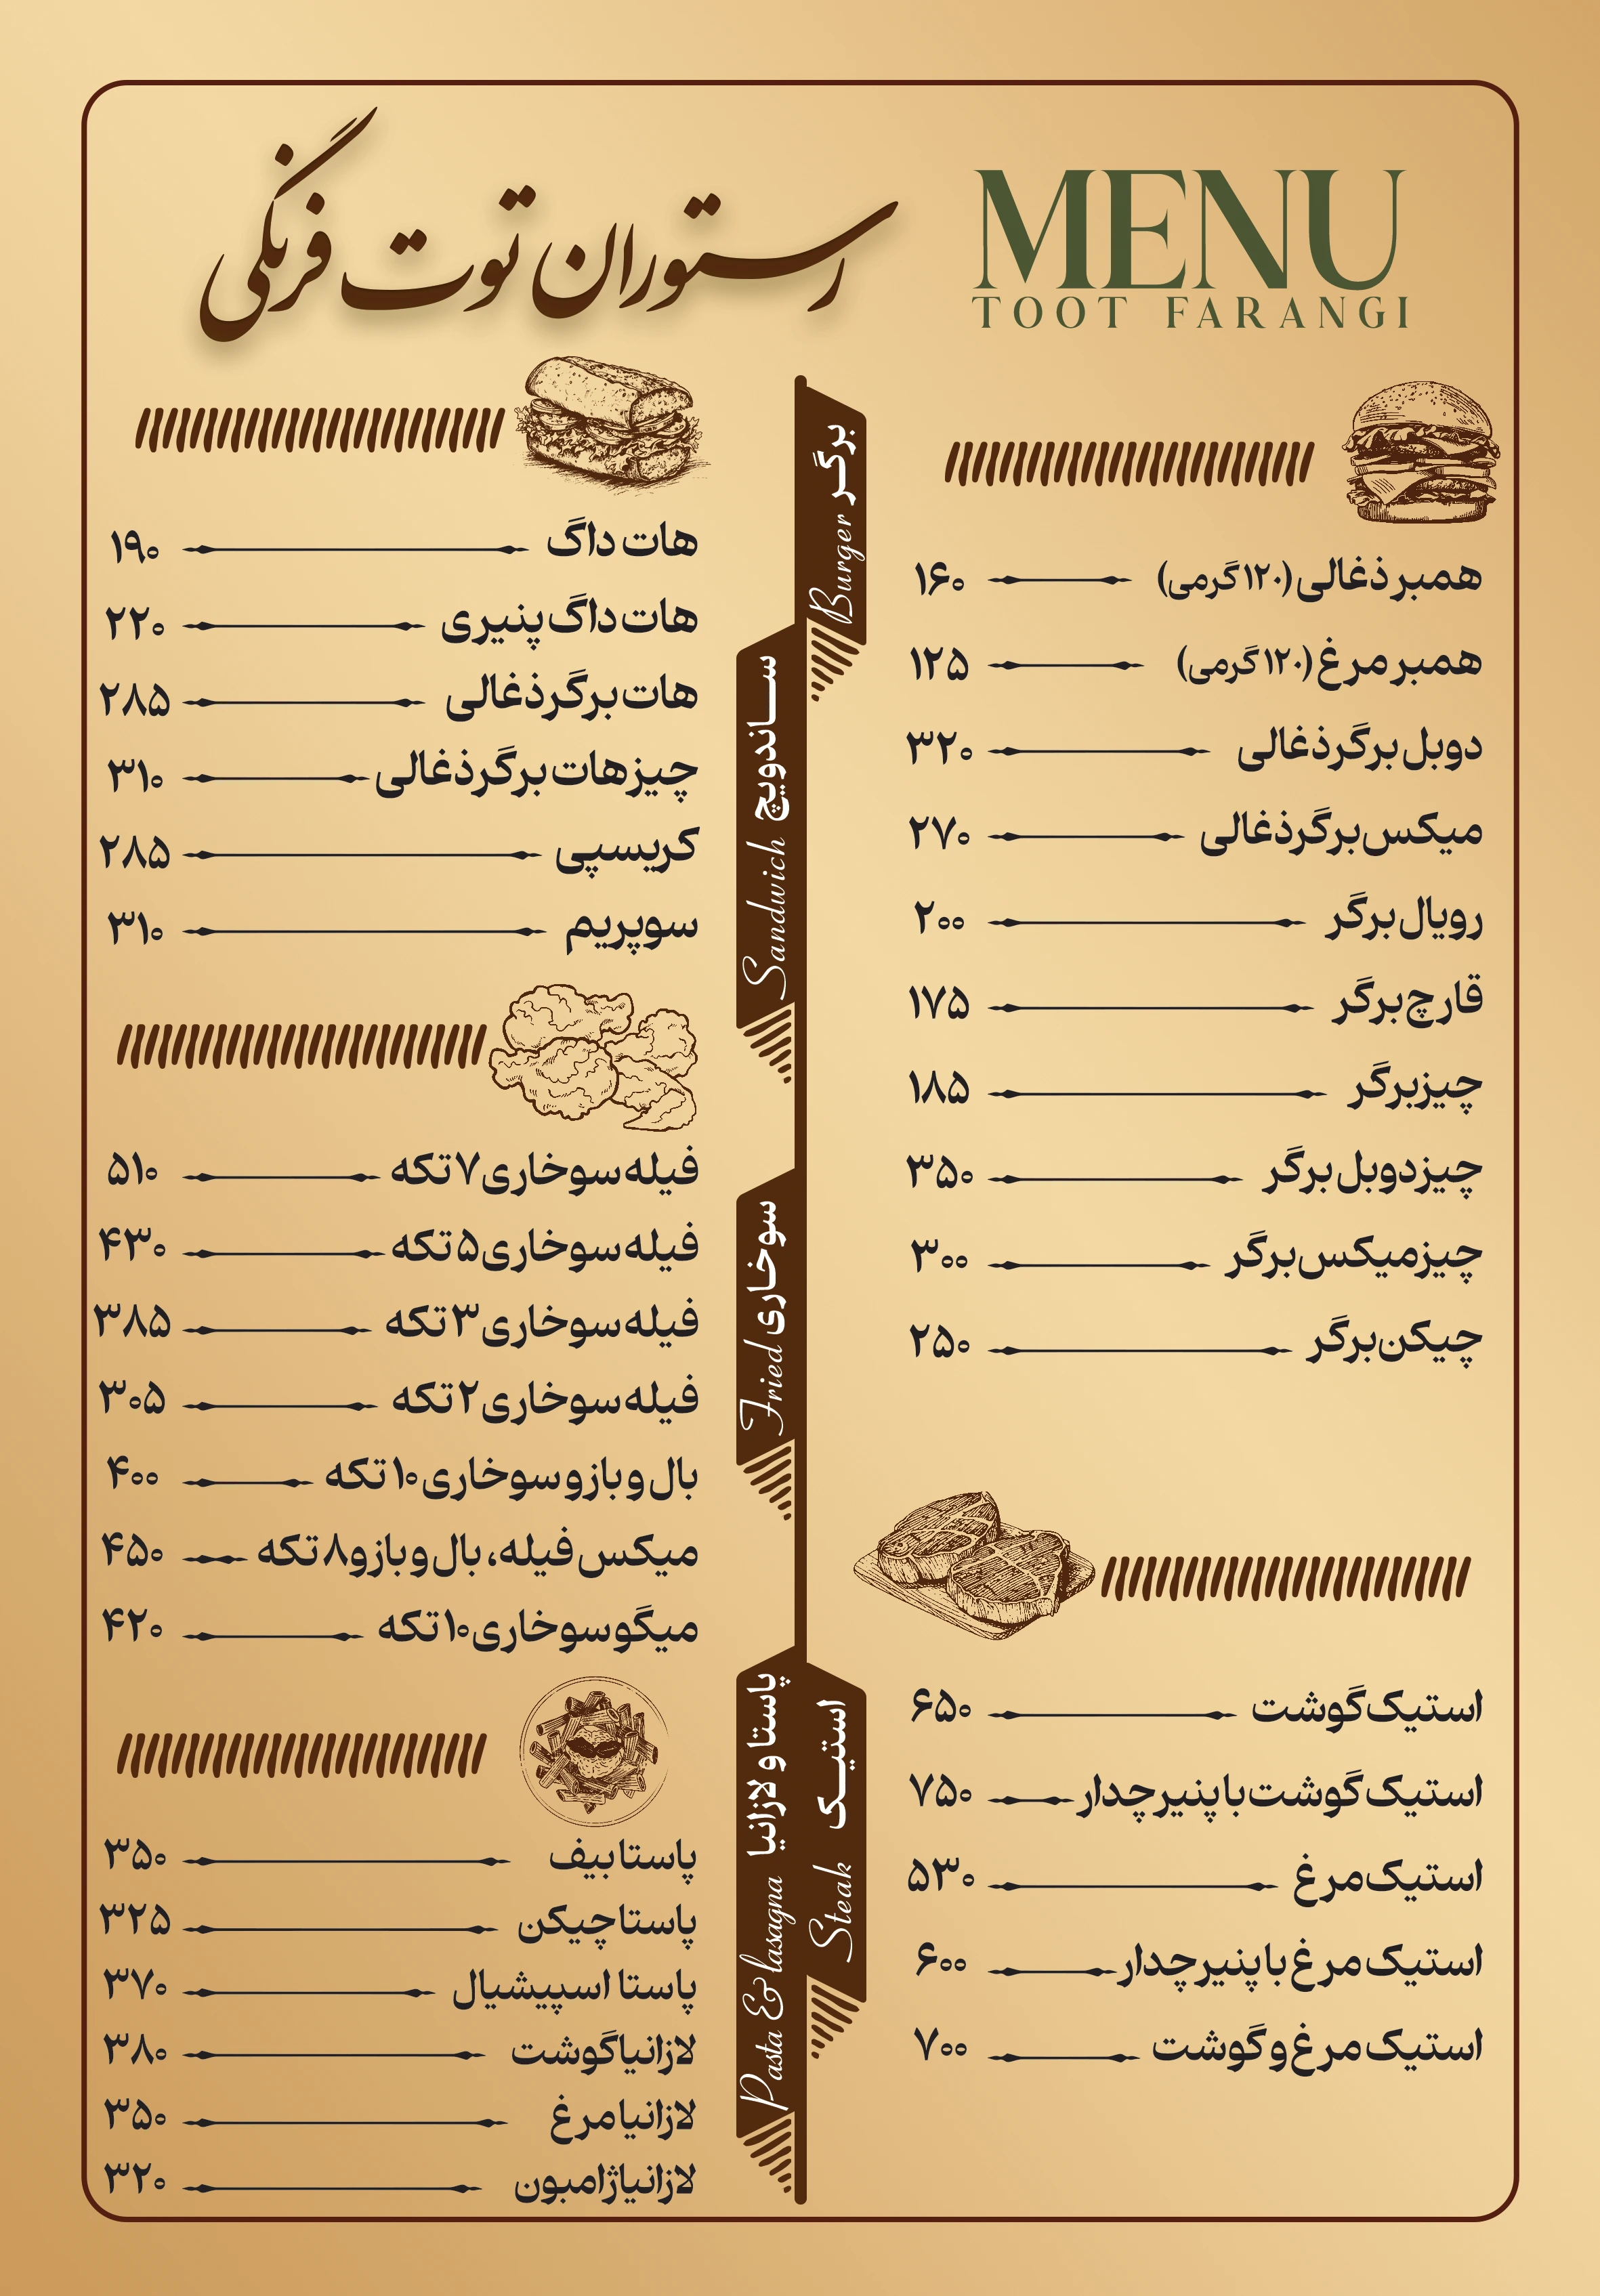 رستوران توت فرنگی
MENU
TOOT FARANGI
برگر Burger
همبر ذغالی (۱۲۰ گرمی) ۱۶۰
همبر مرغ (۱۲۰ گرمی) ۱۲۵
دوبل برگر ذغالی ۳۲۰
میکس برگر ذغالی ۲۷۰
رویال برگر ۲۰۰
قارچ برگر ۱۷۵
چیز برگر ۱۸۵
چیز دوبل برگر ۳۵۰
چیز میکس برگر ۳۰۰
چیکن برگر ۲۵۰
استیک Steak
استیک گوشت ۶۵۰
استیک گوشت با پنیر چدار ۷۵۰
استیک مرغ ۵۳۰
استیک مرغ با پنیر چدار ۶۰۰
استیک مرغ و گوشت ۷۰۰
ساندویچ Sandwich
هات داگ ۱۹۰
هات داگ پنیری ۲۲۰
هات برگر ذغالی ۲۸۵
چیز هات برگر ذغالی ۳۱۰
کریسپی ۲۸۵
سوپریم ۳۱۰
سوخاری Fried
فیله سوخاری ۷ تکه ۵۱۰
فیله سوخاری ۵ تکه ۴۳۰
فیله سوخاری ۳ تکه ۳۸۵
فیله سوخاری ۲ تکه ۳۰۵
بال و بازو سوخاری ۱۰ تکه ۴۰۰
میکس فیله، بال و بازو ۸ تکه ۴۵۰
میگو سوخاری ۱۰ تکه ۴۲۰
پاستا و لازانیا Pasta & lasagna
پاستا بیف ۳۵۰
پاستا چیکن ۳۲۵
پاستا اسپیشیال ۳۷۰
لازانیا گوشت ۳۸۰
لازانیا مرغ ۳۵۰
لازانیا ژامبون ۳۲۰